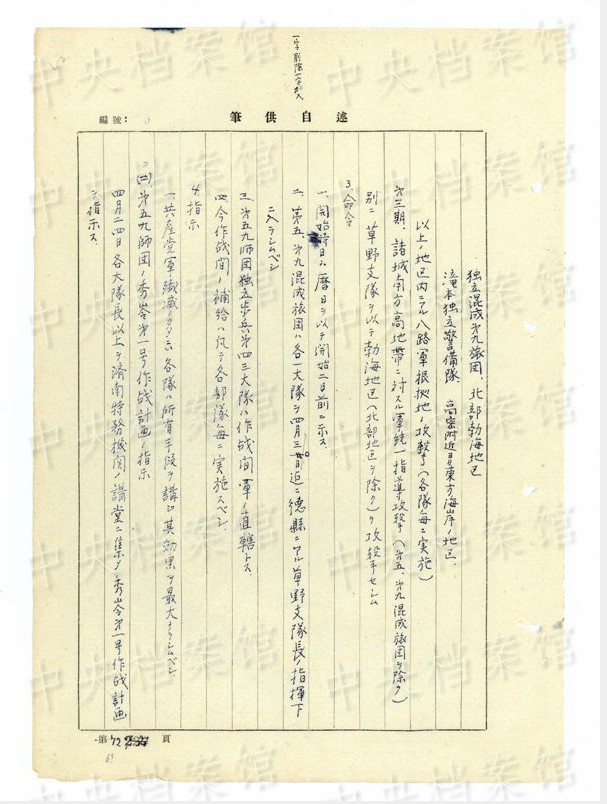 一字削除一字加入
述自供筆
編號：
独立混成第九旅团、北部勃海地区
滝本独立警備隊 高密附近ヨリ東方海岸ノ地区、
以上ノ地区内ニアル八路軍根拠地ノ攻撃（各隊毎ニ実施）
第三期、諸城南方高地帯ニ対スル軍統一指導攻撃（第五、第九混成旅团ヲ除ク）
別ニ草野支隊ヲ以テ勃海地区（北部地区ヲ除ク）ヲ攻撃セシム
3、命令
一、開始時日ハ暦日ヲ以テ開始二日前ニ示ス、
二、第五、第九混成旅团ハ各一大隊ヲ四月三十日迄ニ德縣ニアル草野支隊長ノ指揮下
ニ入ラシムベシ
三、第五九師团独立歩兵第四三大隊ハ作战间軍ノ直轄トス、
四、今作战间ノ補給ハ凡テ各部隊毎ニ実施スベシ、
4、指示
一、共産党軍ノ殲滅ノタメニ各隊ハ所有手段ヲ講ジ其効果ヲ最大ナラシムベシ
(二)、第五九師团ノ秀岺第一号作战計画ノ指示
四月二四日各大隊長以上ヲ済南特務機関ノ講堂ニ集メ秀岺第一号作战計画
ヲ指示ス、
第72頁
69
中央档案馆